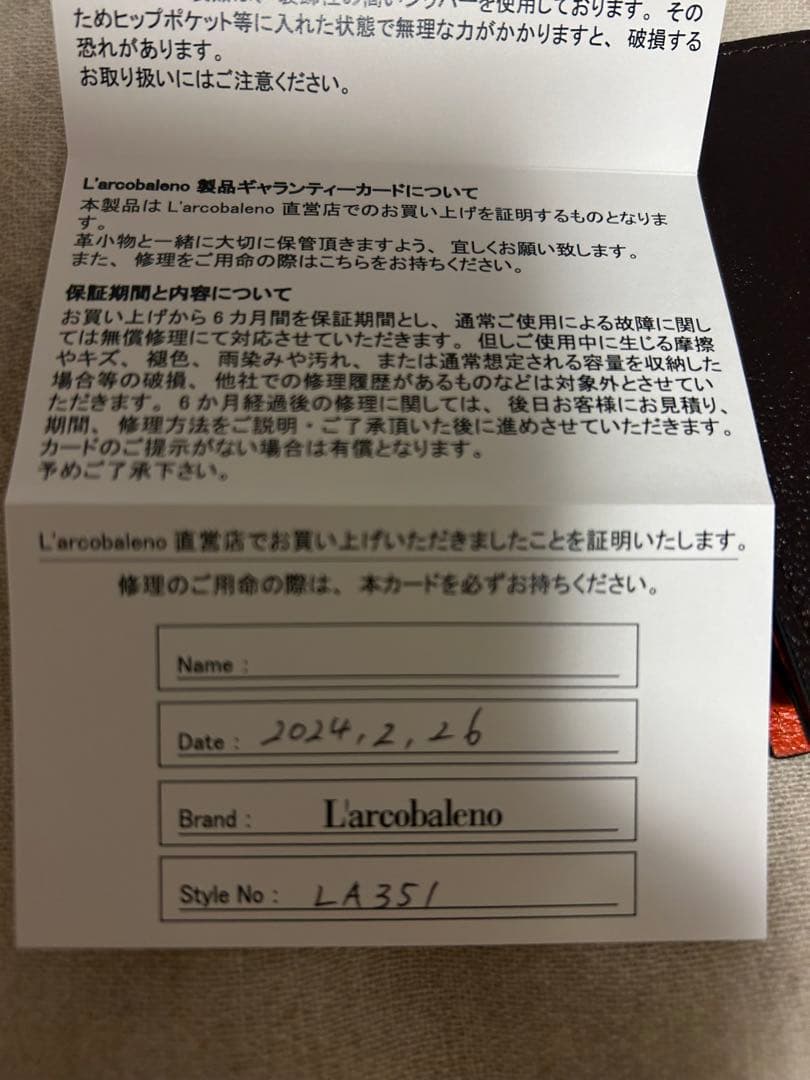 を使用しております。その
ためヒップポケット等に入れた状態で無理な力がかかりますと、破損する
恐れがあります。
お取り扱いにはご注意ください。
L'arcobaleno 製品ギャランティーカードについて
本製品は L'arcobaleno 直営店でのお買い上げを証明するものとなりま
す。
革小物と一緒に大切に保管頂きますよう、宜しくお願い致します。
また、修理をご用命の際はこちらをお持ちください。
保証期間と内容について
お買い上げから6カ月間を保証期間とし、通常ご使用による故障に関し
ては無償修理にて対応させていただきます。但しご使用中に生じる摩擦
やキズ、褪色、雨染みや汚れ、または通常想定される容量を収納した
場合等の破損、他社での修理履歴があるものなどは対象外とさせてい
ただきます。6か月経過後の修理に関しては、後日お客様にお見積り、
期間、修理方法をご説明・ご了承頂いた後に進めさせていただきます。
カードのご提示がない場合は有償となります。
予めご了承下さい。
L'arcobaleno 直営店でお買い上げいただきましたことを証明いたします。
修理のご用命の際は、本カードを必ずお持ちください。
Name :
Date : 2024.2.26
Brand : L'arcobaleno
Style No : LA351